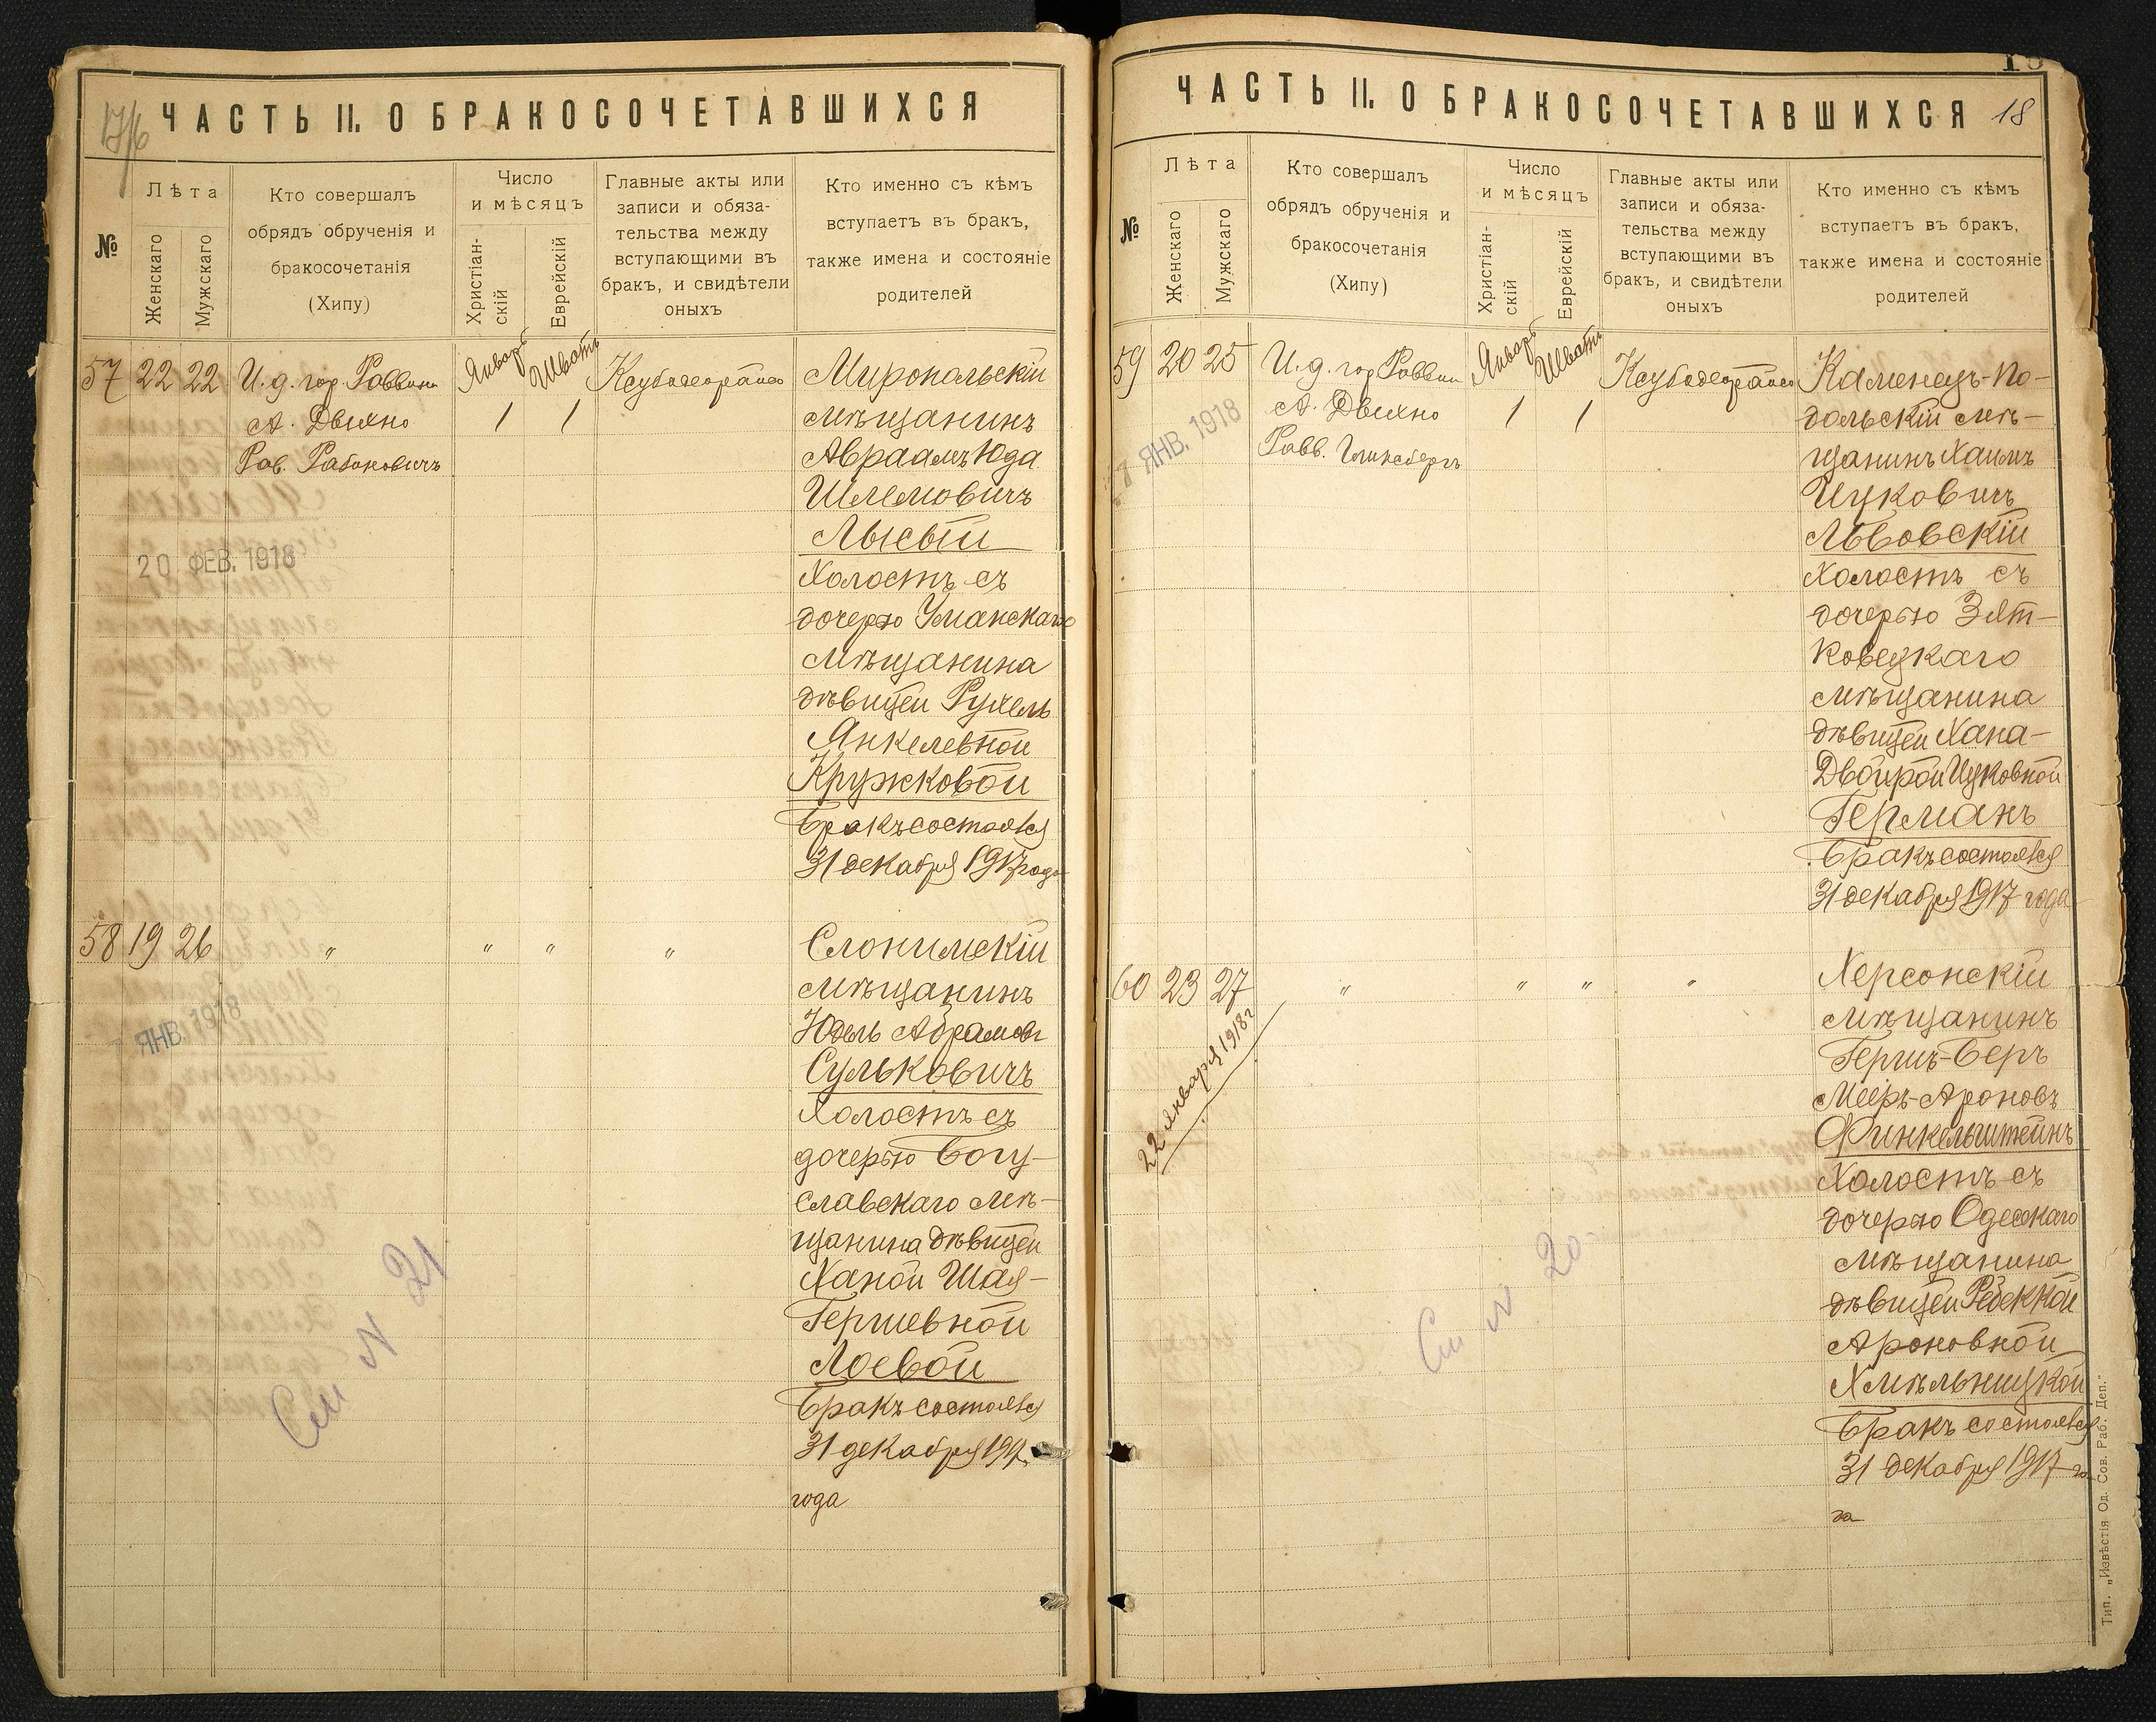 17/6
ЧАСТЬ II. О БРАКОСОЧЕТАВШИХСЯ
№
Лѣта
Женскаго
Мужскаго
Кто совершалъ
обрядъ обрученія и
бракосочетанія
(Хипу)
Число
и мѣсяцъ
Христіан-
скій
Еврейскій
Главные акты или
записи и обяза-
тельства между
вступающими въ
бракъ, и свидѣтели
оныхъ
Кто именно съ кѣмъ
вступаетъ въ бракъ,
также имена и состояніе
родителей
57 22 22
И. д. гор. Раввина
А. Двихно
Рав. Рабиновичъ
Январь
Шватъ
1 1
20 ФЕВ. 1918
Миропольскій
мѣщанинъ
Авраамъ Юда
Шлемовичъ
Лысый
Холостъ съ
дочерью Уманскаго
мѣщанина
дѣвицей Рухель
Янкелевной
Кружковой
Бракъ состоялся
31 декабря 1917 года
58 19 26
" " " "
ЯНВ. 1918
См N 21
Слонимскій
мѣщанинъ
Юдель Абрамов
Сульковичъ
Холостъ съ
дочерью Богу-
славскаго мѣ-
щанина дѣвицей
Ханой Шая-
Гершевной
Лоевой
Бракъ состоялся
31 декабря 1917
года
18
ЧАСТЬ II. О БРАКОСОЧЕТАВШИХСЯ 18
№
Лѣта
Женскаго
Мужскаго
Кто совершалъ
обрядъ обрученія и
бракосочетанія
(Хипу)
Число
и мѣсяцъ
Христіан-
скій
Еврейскій
Главные акты или
записи и обяза-
тельства между
вступающими въ
бракъ, и свидѣтели
оныхъ
Кто именно съ кѣмъ
вступаетъ въ бракъ,
также имена и состояніе
родителей
59 20 25
И. д. гор Раввин
А. Двихно
Равв. Гинсбергъ
Январь
Шватъ
1 1
7 ЯНВ. 1918
Каменецъ-По-
дольскій мѣ-
щанинъ Хаимъ
Ицковичъ
Львовскій
Холостъ съ
дочерью Зят-
ковецкаго
мѣщанина
дѣвицей Хана-
Двойрой Ицковной
Германъ
Бракъ состоялся
31 декабря 1917 года
60 23 27
" " " "
22 января 1918 г
См N 20
Херсонскій
мѣщанинъ
Гершъ-Беръ
Меиръ-Ароновъ
Финкельштейнъ
Холостъ съ
дочерью Одесскаго
мѣщанина
дѣвицей Ребеккой
Ароновной
Хмѣльницкой
Бракъ состоялся
31 декабря 1917 го
да
Тип. „Извѣстія Од. Сов. Раб. Деп."